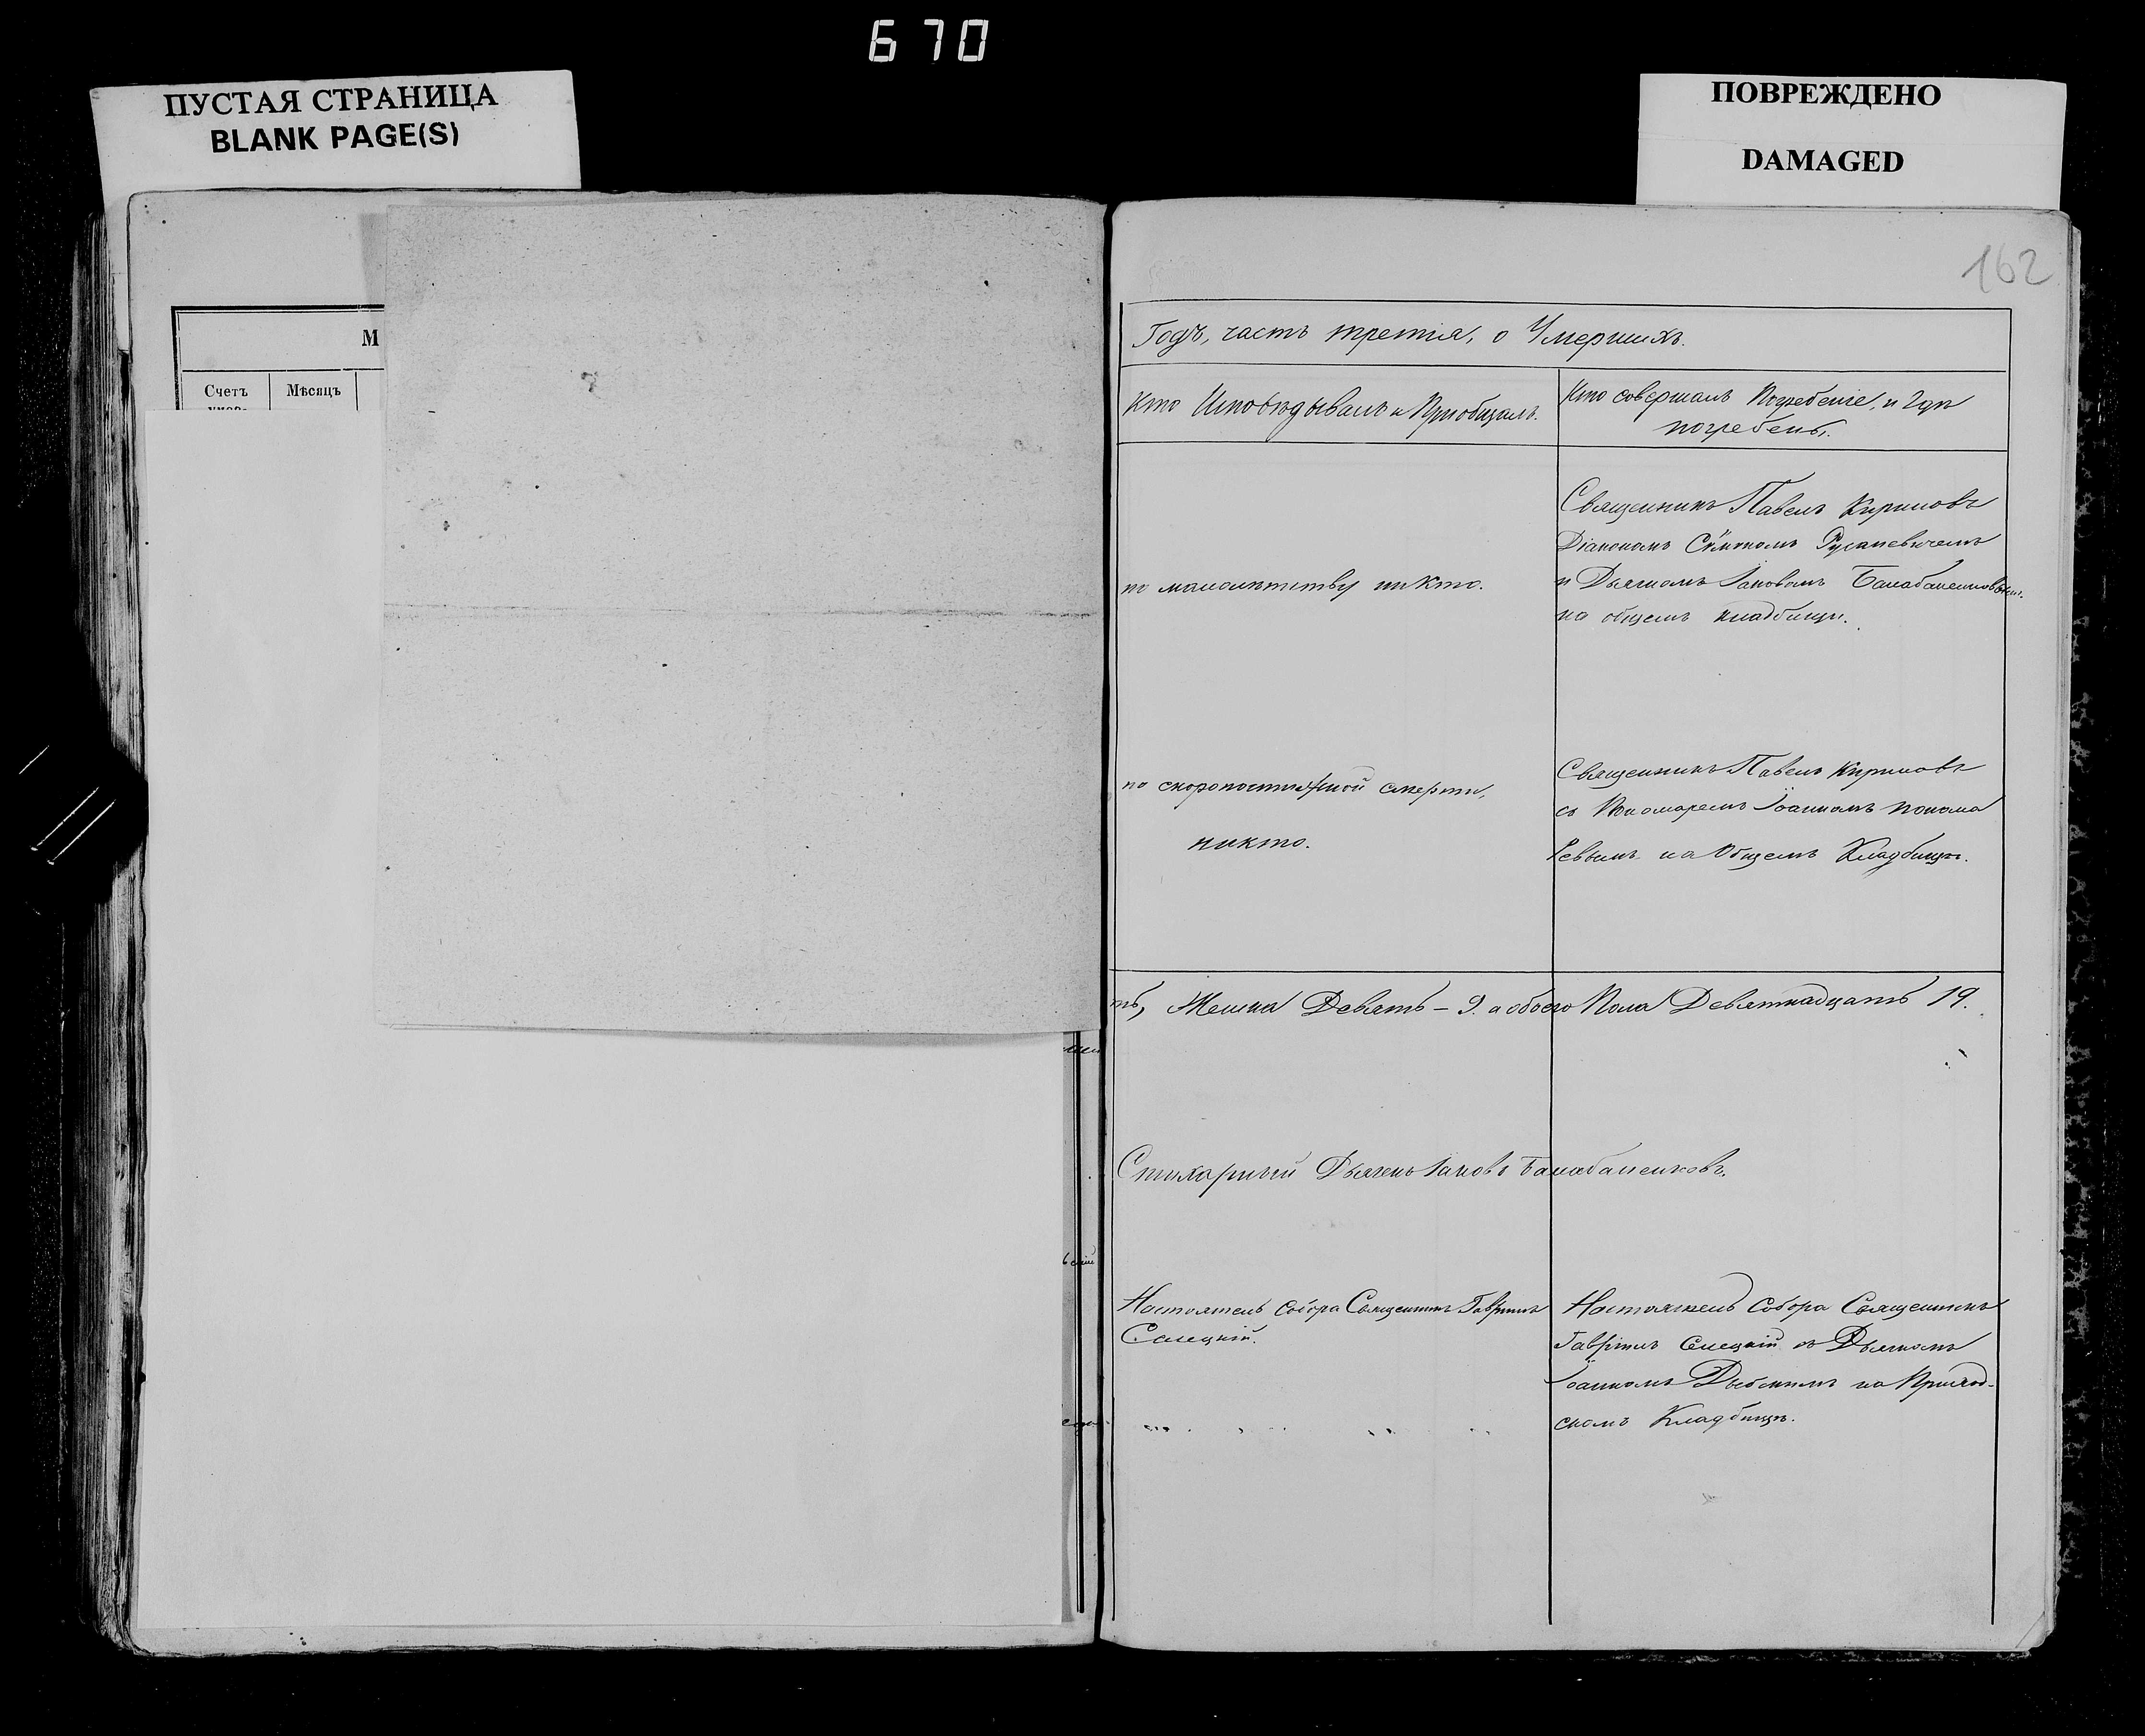 670
ПУСТАЯ СТРАНИЦА
BLANK PAGE(S)
ПОВРЕЖДЕНО
DAMAGED
162
М
Счетъ
Мѣсяцъ
Годъ, часть третія, о Умершихъ.
Кто Исповѣдывалъ и Пріобщалъ.
Кто совершалъ Погребеніе, и гдѣ
погребены.
по малолѣтству никто.
Священникъ Павелъ Кириловъ
Діакономъ Сѵмономъ Русаневичемъ
и Дьячкомъ Іаковомъ Балабаненковымъ.
на общемъ кладбищѣ.
по скоропостижной смерти,
никто.
Священникъ Павелъ Кириловъ
съ Пономаремъ Іоанномъ Понома
ревымъ на Общемъ Кладбищѣ.
ть, Женска Девять – 9. а обоего Пола Девятнадцать 19.
Стихарный Дьячекъ Іаковъ Балабаненковъ.
Настоятель Собора Священникъ Гавріилъ
Селецкій.
Настоятель Собора Священникъ
Гавріилъ Селецкій съ Дьячкомъ
Іоанномъ на Приход-
скомъ Кладбищѣ.